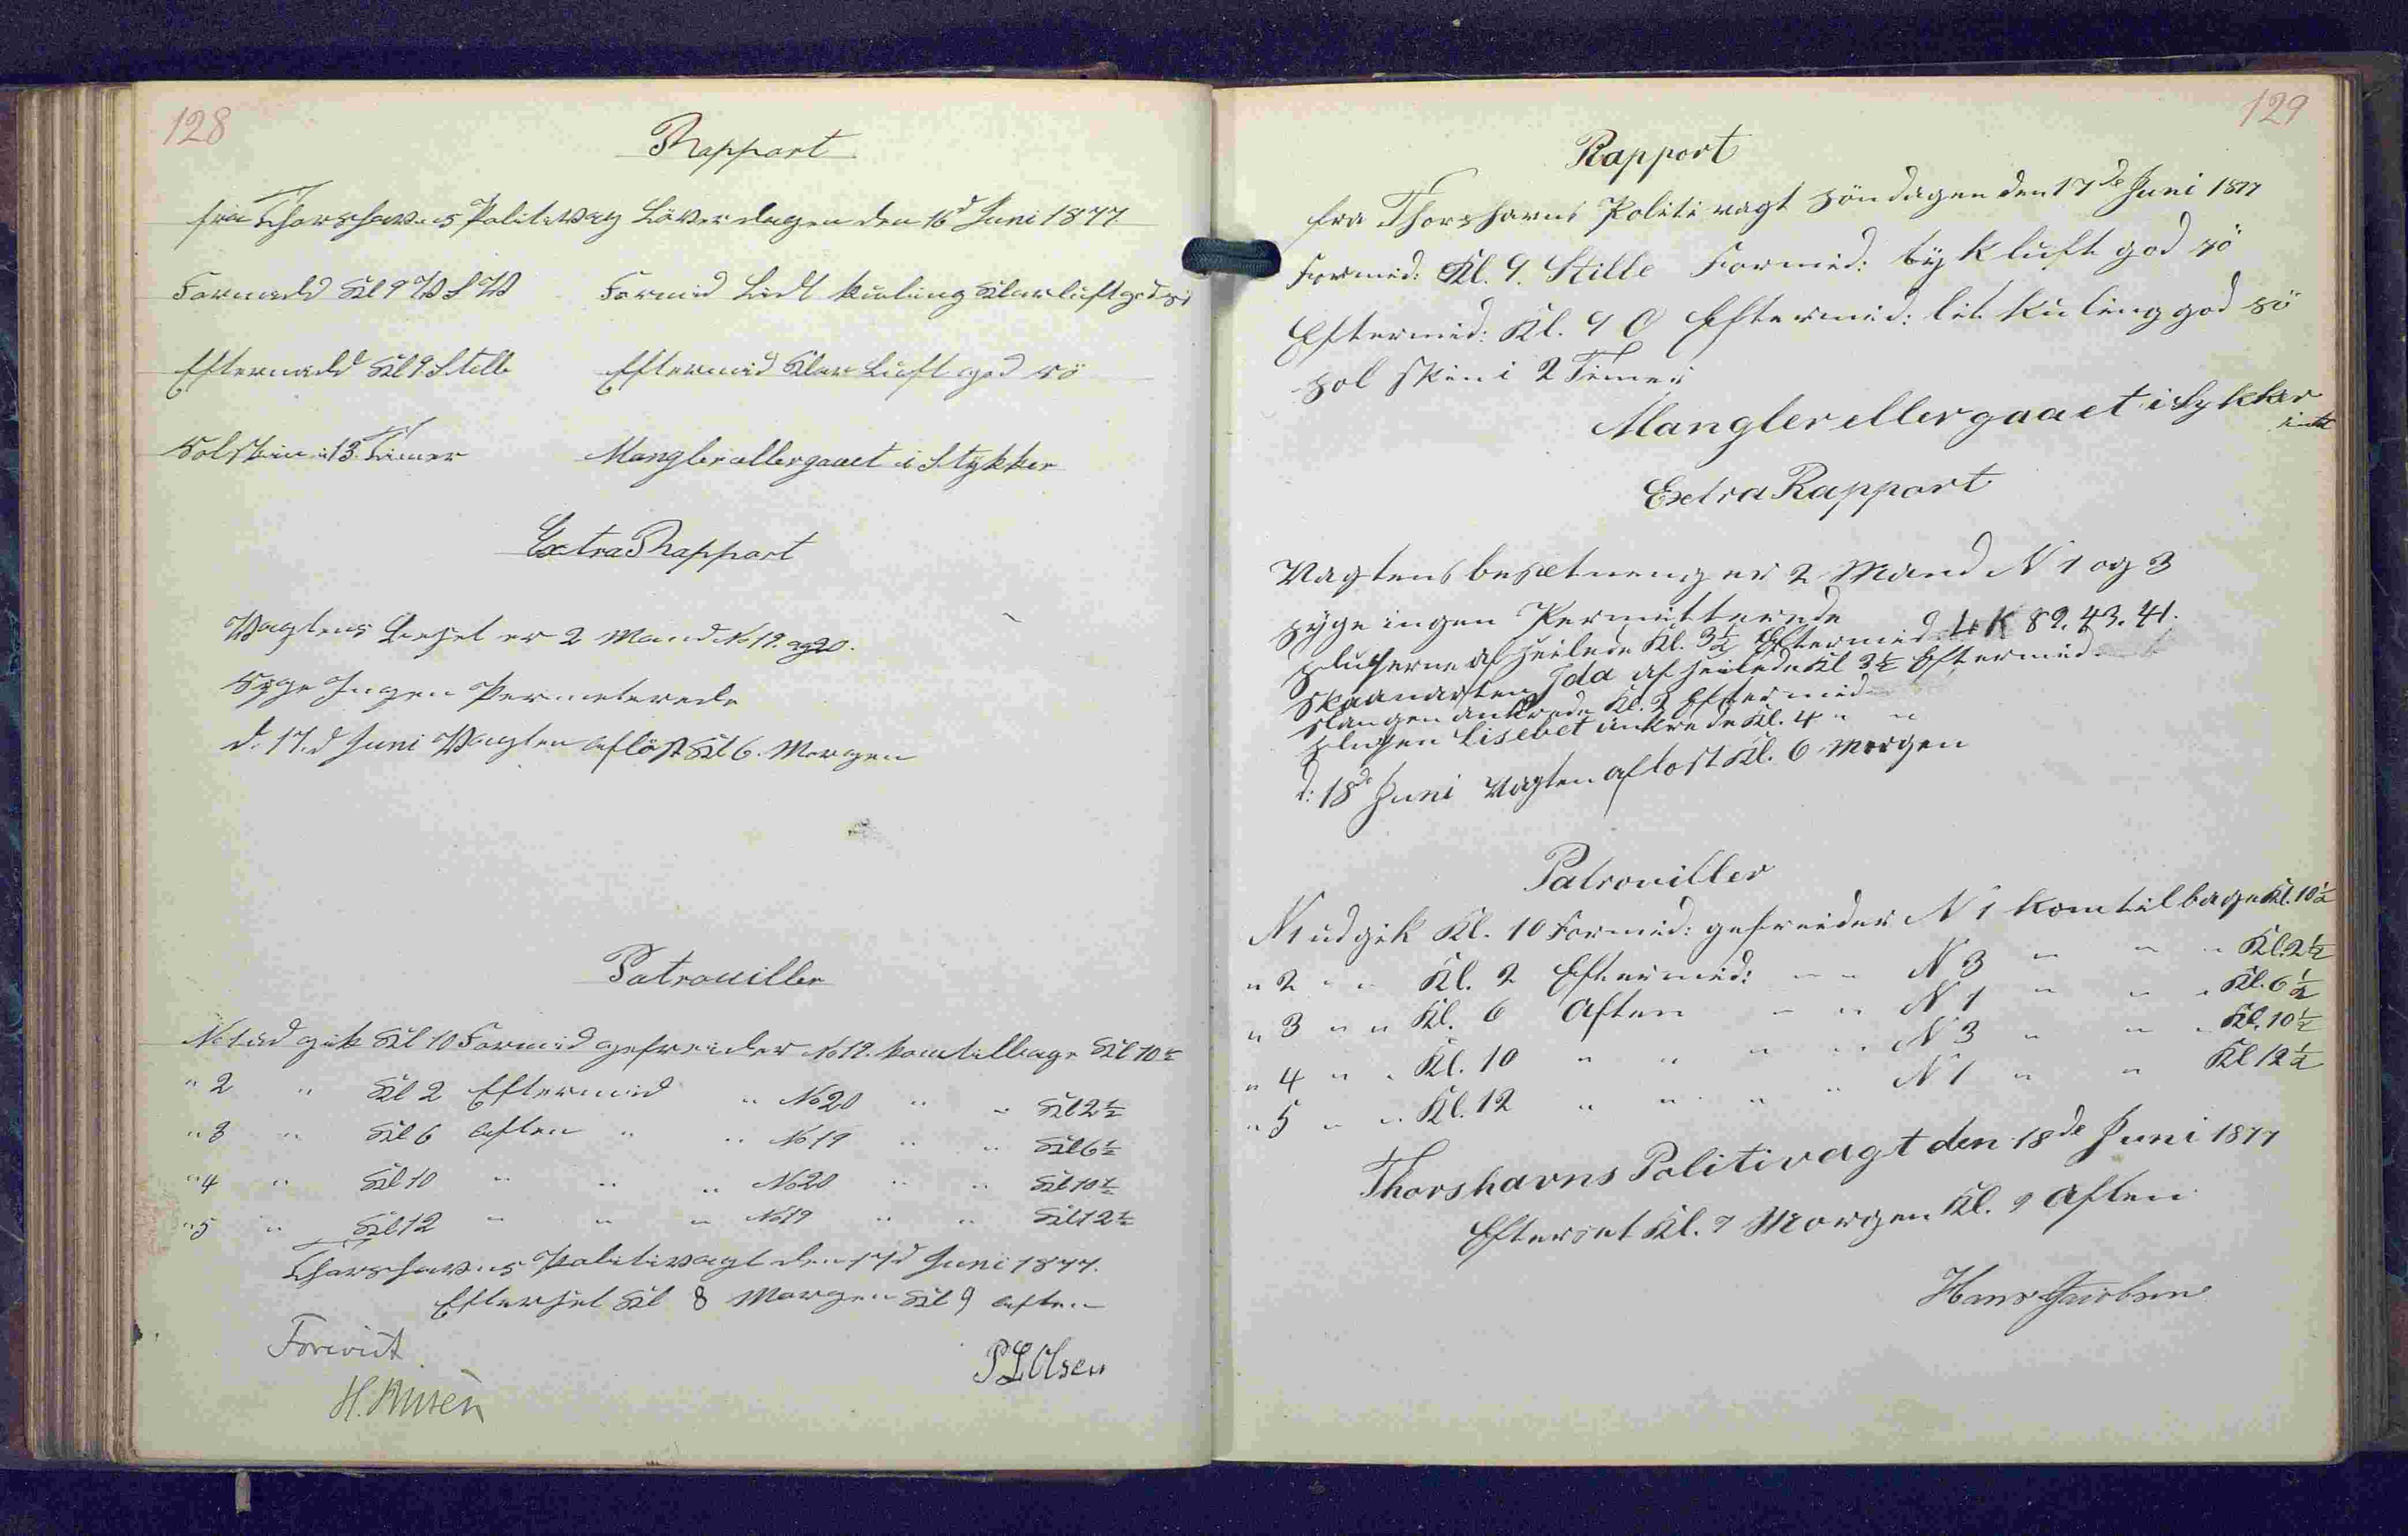 128
Rapport
fra Thorshavns Politivag Löverdagen den 16d Juni 1877
Formidd Kl 9 W S W Formid Lidt kuling Klarluft god sö
Eftermidd Kl 9 Stille Eftermid Klar Luft god sö
Solskin i 13 Timer Mangler eller gaaet i Stykker
Extra Rapport
Vagtens Beset er 2 Mand No 19. og 20.
Syge Ingen Permeterede
d. 17.d Juni Vagten aflöst Kl 6. Morgen
Patrouiller
No 1 ud gik Kl 10 Formid gefreider No 19. kom tilbage Kl 10 1/2
" 2 " Kl 2 Eftermid " No 20 " " Kl 2 1/2
" 3 " Kl 6 Aften " " No 19 " " Kl 6 1/2
" 4 " Kl 10 " " " No 20 " " Kl 10 1/2
" 5 " Kl 12 " " " No 19 " " Kl 12 1/2
Thorshavns Politivagt den 17d Juni 1877.
Efterset Kl 8 Morgen Kl 9 Aften
Forevist
P L Olsen
H.
129
Rapport
fra Thorshavns Politivagt Söndagen den 17de Juni 1877
Formid: Kl. 9. Stille Formid: tyk luft god sö
Eftermid: Kl. 9 O Eftermid: lit kuling god sö
Sol skin i 2 Timer
Mangler eller gaaet i Sykker
intet
Extra Rapport
Vagtens besætneng er 2 Mand N 1 og 3
Syge ingen Permitterede
Slupperne af seilede Kl. 3 1/2 Eftermid 4 K 89. 43. 41.
Skonnarten Ida af seilede Kl 3 1/2 Eftermid
ankrede Kl. 3 Eftermid
Slupen Lisebet ankrede Kl. 4 " "
d: 18de Juni Vagten aflost Kl. 6 Morgen
Patrouiller
N 1 ud gik Kl. 10 Formid: gefreider N 1 kom tilbage Kl. 10 1/2
" 2 " " Kl. 2 Eftermid: " " N 3 " " " Kl. 2 1/2
" 3 " " Kl. 6 Aften " " N 1 " " " Kl. 6 1/2
" 4 " " Kl. 10 " " " " N 3 " " " Kl. 10 1/2
" 5 " " Kl. 12 " " " " N 1 " " Kl 12 1/2
Thorshavns Politivagt den 18de Juni 1877
Efterset Kl. 9 Morgen Kl. 9 Aften
Hans Jacobsen